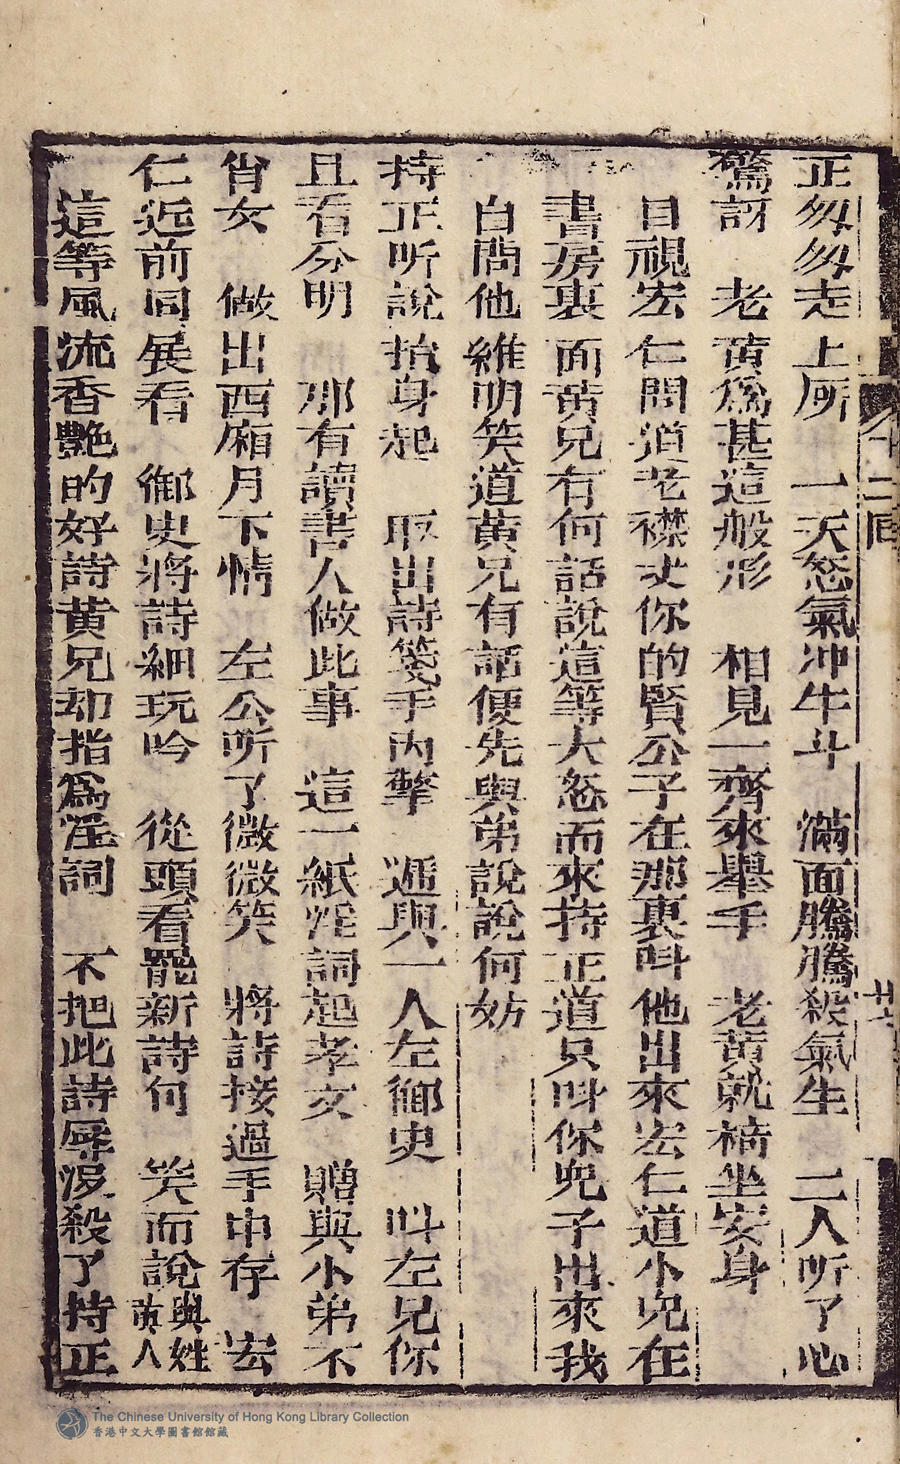 正匆匆走上厠　一天怒氣冲牛斗　滿面騰騰殺氣生　二人听了心
驚訝　老黄爲甚這般形　相見一齊來舉手　老黄就椅坐安身
目視宏仁問道老襟丈你的賢公子在那裏呌他出來宏仁道小兒在
書房裏面黄兄有何話說這等大怒而來持正道只呌你兒子出來我
自問他維明笑道黄兄有話便先與弟說說何妨
持正听說抬身起　取出詩箋手内擎　遞與一人左御史　呌左兄你
且看分明　那有讀書人做此事　這一紙淫詞起孝女　贈與小弟不
肖女　做出西廂月下情　左公听了微微笑　將詩接過手中存　宏
仁近前同展看　御史將詩細玩吟　從頭看罷新詩句　笑而說與姓黄人
這等風流香艷的好詩黄兄却指爲淫詞　不把此詩辱没殺了持正
二回
The Chinese University of Hong Kong Library Collection
香港中文大學圖書館館藏